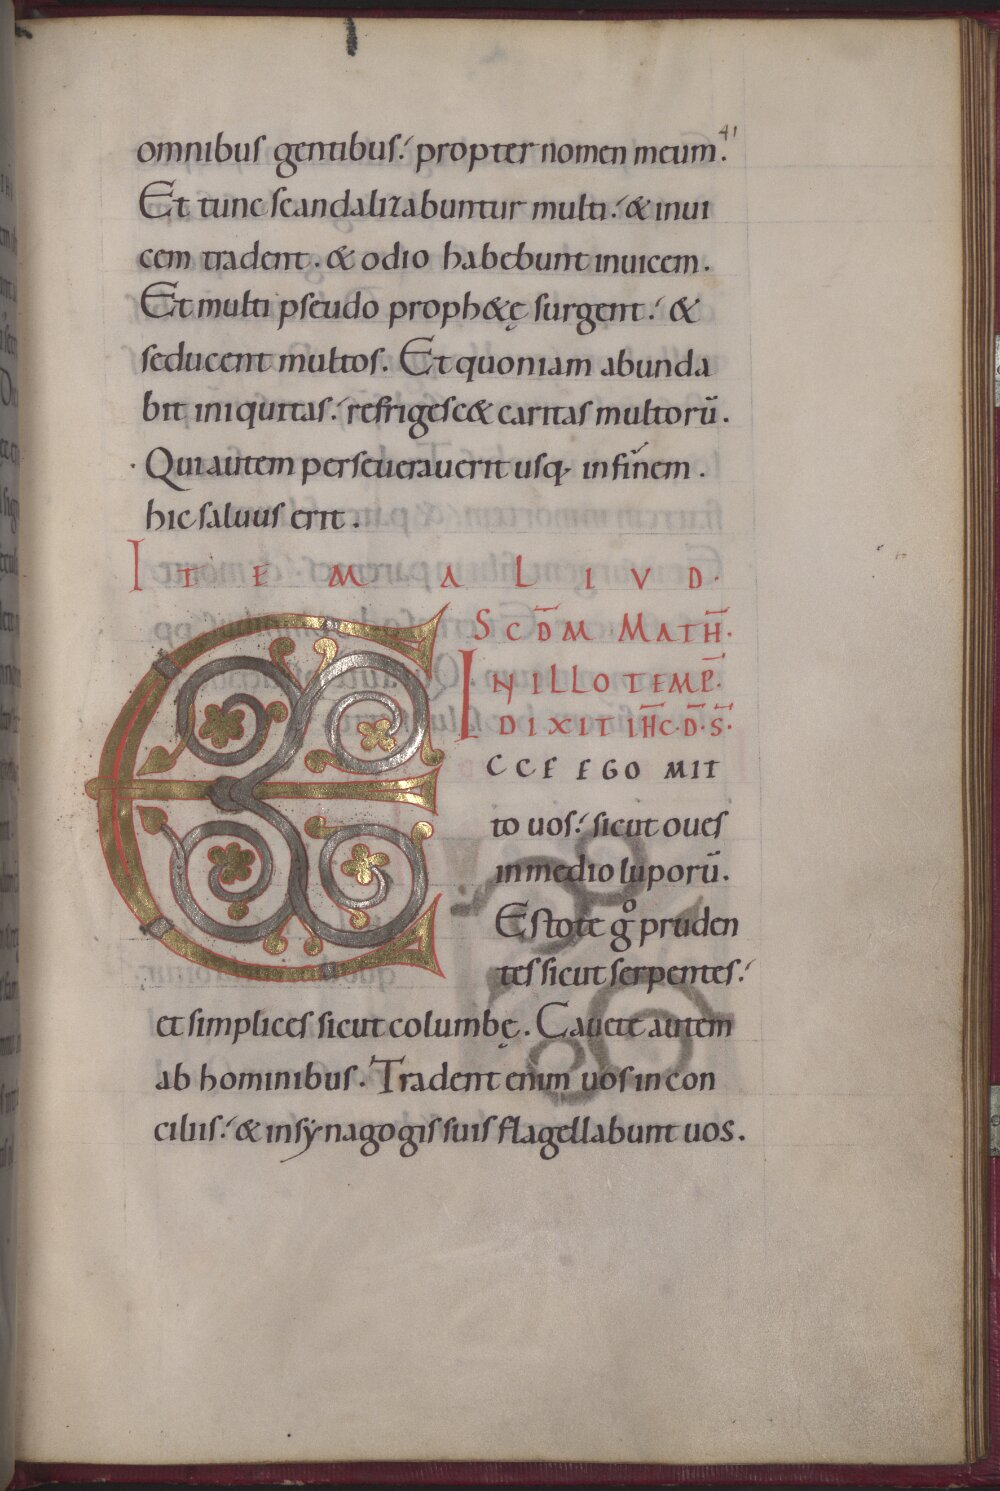 41
omnibus gentibus. propter nomen meum.
Et tunc scandalizabuntur multi. & inui
cem tradent. & odio habebunt inuicem.
Et multi pseudo proph&ę surgent. &
seducent multos. Et quoniam abunda
bit iniquitas. refrigesc& caritas multorū.
Qui autem perseuerauerit usq; in finem.
hic saluus erit.
ITEM ALIVD.
SCDM MATH.
IN ILLO TEMP.
DIXIT IHC. D. S.
ECCE EGO MIT
to uos. sicut oues
in medio luporū.
Estote gͦ pruden
tes sicut serpentes.
et simplices sicut columbę. Cauete autem
ab hominibus. Tradent enim uos in con
ciliis. & in synagogis suis flagellabunt uos.